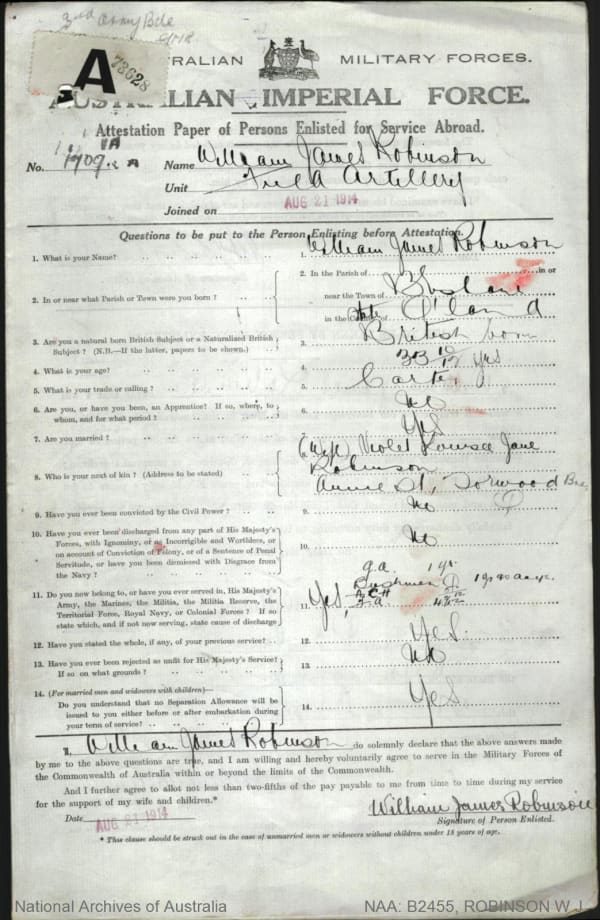 3rd Army Bde
A 73628
AUSTRALIAN MILITARY FORCES.
AUSTRALIAN IMPERIAL FORCE.
Attestation Paper of Persons Enlisted for Service Abroad.
No. 1709 Name William James Robinson
Unit Field Artillery
Joined on AUG 21 1914
Questions to be put to the Person Enlisting before Attestation.
1. What is your Name? 1. William James Robinson
2. In or near what Parish or Town were you born? 2. In the Parish of in or
near the Town of Brisbane
in the County of State Q'land
3. Are you a natural born British Subject or a Naturalized British
Subject? (N.B.—If the latter, papers to be shown.) 3. British born
4. What is your age? 4. 33 10/12 yrs
5. What is your trade or calling? 5. Carter
6. Are you, or have you been, an Apprentice? If so, where, to
whom, and for what period? 6. No
7. Are you married? 7. Yes
8. Who is your next of kin? (Address to be stated) 8. (Wife) Violet Louisa Jane
Robinson
Annie St, Torwood Bne
9. Have you ever been convicted by the Civil Power? 9. No
10. Have you ever been discharged from any part of His Majesty's
Forces, with Ignominy, or as Incorrigible and Worthless, or
on account of Conviction of Felony, or of a Sentence of Penal
Servitude, or have you been dismissed with Disgrace from
the Navy? 10. No
11. Do you now belong to, or have you ever served in, His Majesty's
Army, the Marines, the Militia, the Militia Reserve, the
Territorial Force, Royal Navy, or Colonial Forces? If so
state which, and if not now serving, state cause of discharge 11. Yes, 1 yr
Bushmen
12. Have you stated the whole, if any, of your previous service? 12. Yes
13. Have you ever been rejected as unfit for His Majesty's Service?
If so on what grounds? 13. No
14. (For married men and widowers with children)—
Do you understand that no Separation Allowance will be
issued to you either before or after embarkation during
your term of service? 14. Yes
I, William James Robinson do solemnly declare that the above answers made
by me to the above questions are true, and I am willing and hereby voluntarily agree to serve in the Military Forces of
the Commonwealth of Australia within or beyond the limits of the Commonwealth.
And I further agree to allot not less than two-fifths of the pay payable to me from time to time during my service
for the support of my wife and children.*
William James Robinson
Date AUG 21 1914 Signature of Person Enlisted.
* This clause should be struck out in the case of unmarried men or widowers without children under 18 years of age.
National Archives of Australia NAA: B2455, ROBINSON W J